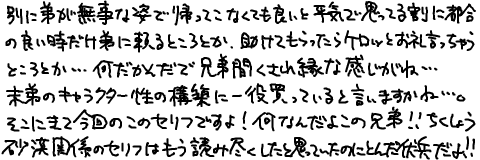 別に弟が無事な姿で帰ってこなくても良いと平気で思ってる割に都合
の良い時だけ弟に頼るところとか、助けてもらったらケロッとお礼言っちゃう
ところとか…何だかんだで兄弟間くされ縁な感じがね…
末弟のキャラクター性の構築に一役買っていると言いますかね…。
そこにきて今回のこのセリフですよ!何なんだよこの兄弟!!ちくしょう
砂漠関係のセリフはもう読み尽くしたと思っていたのにとんだ伏兵だよ!!